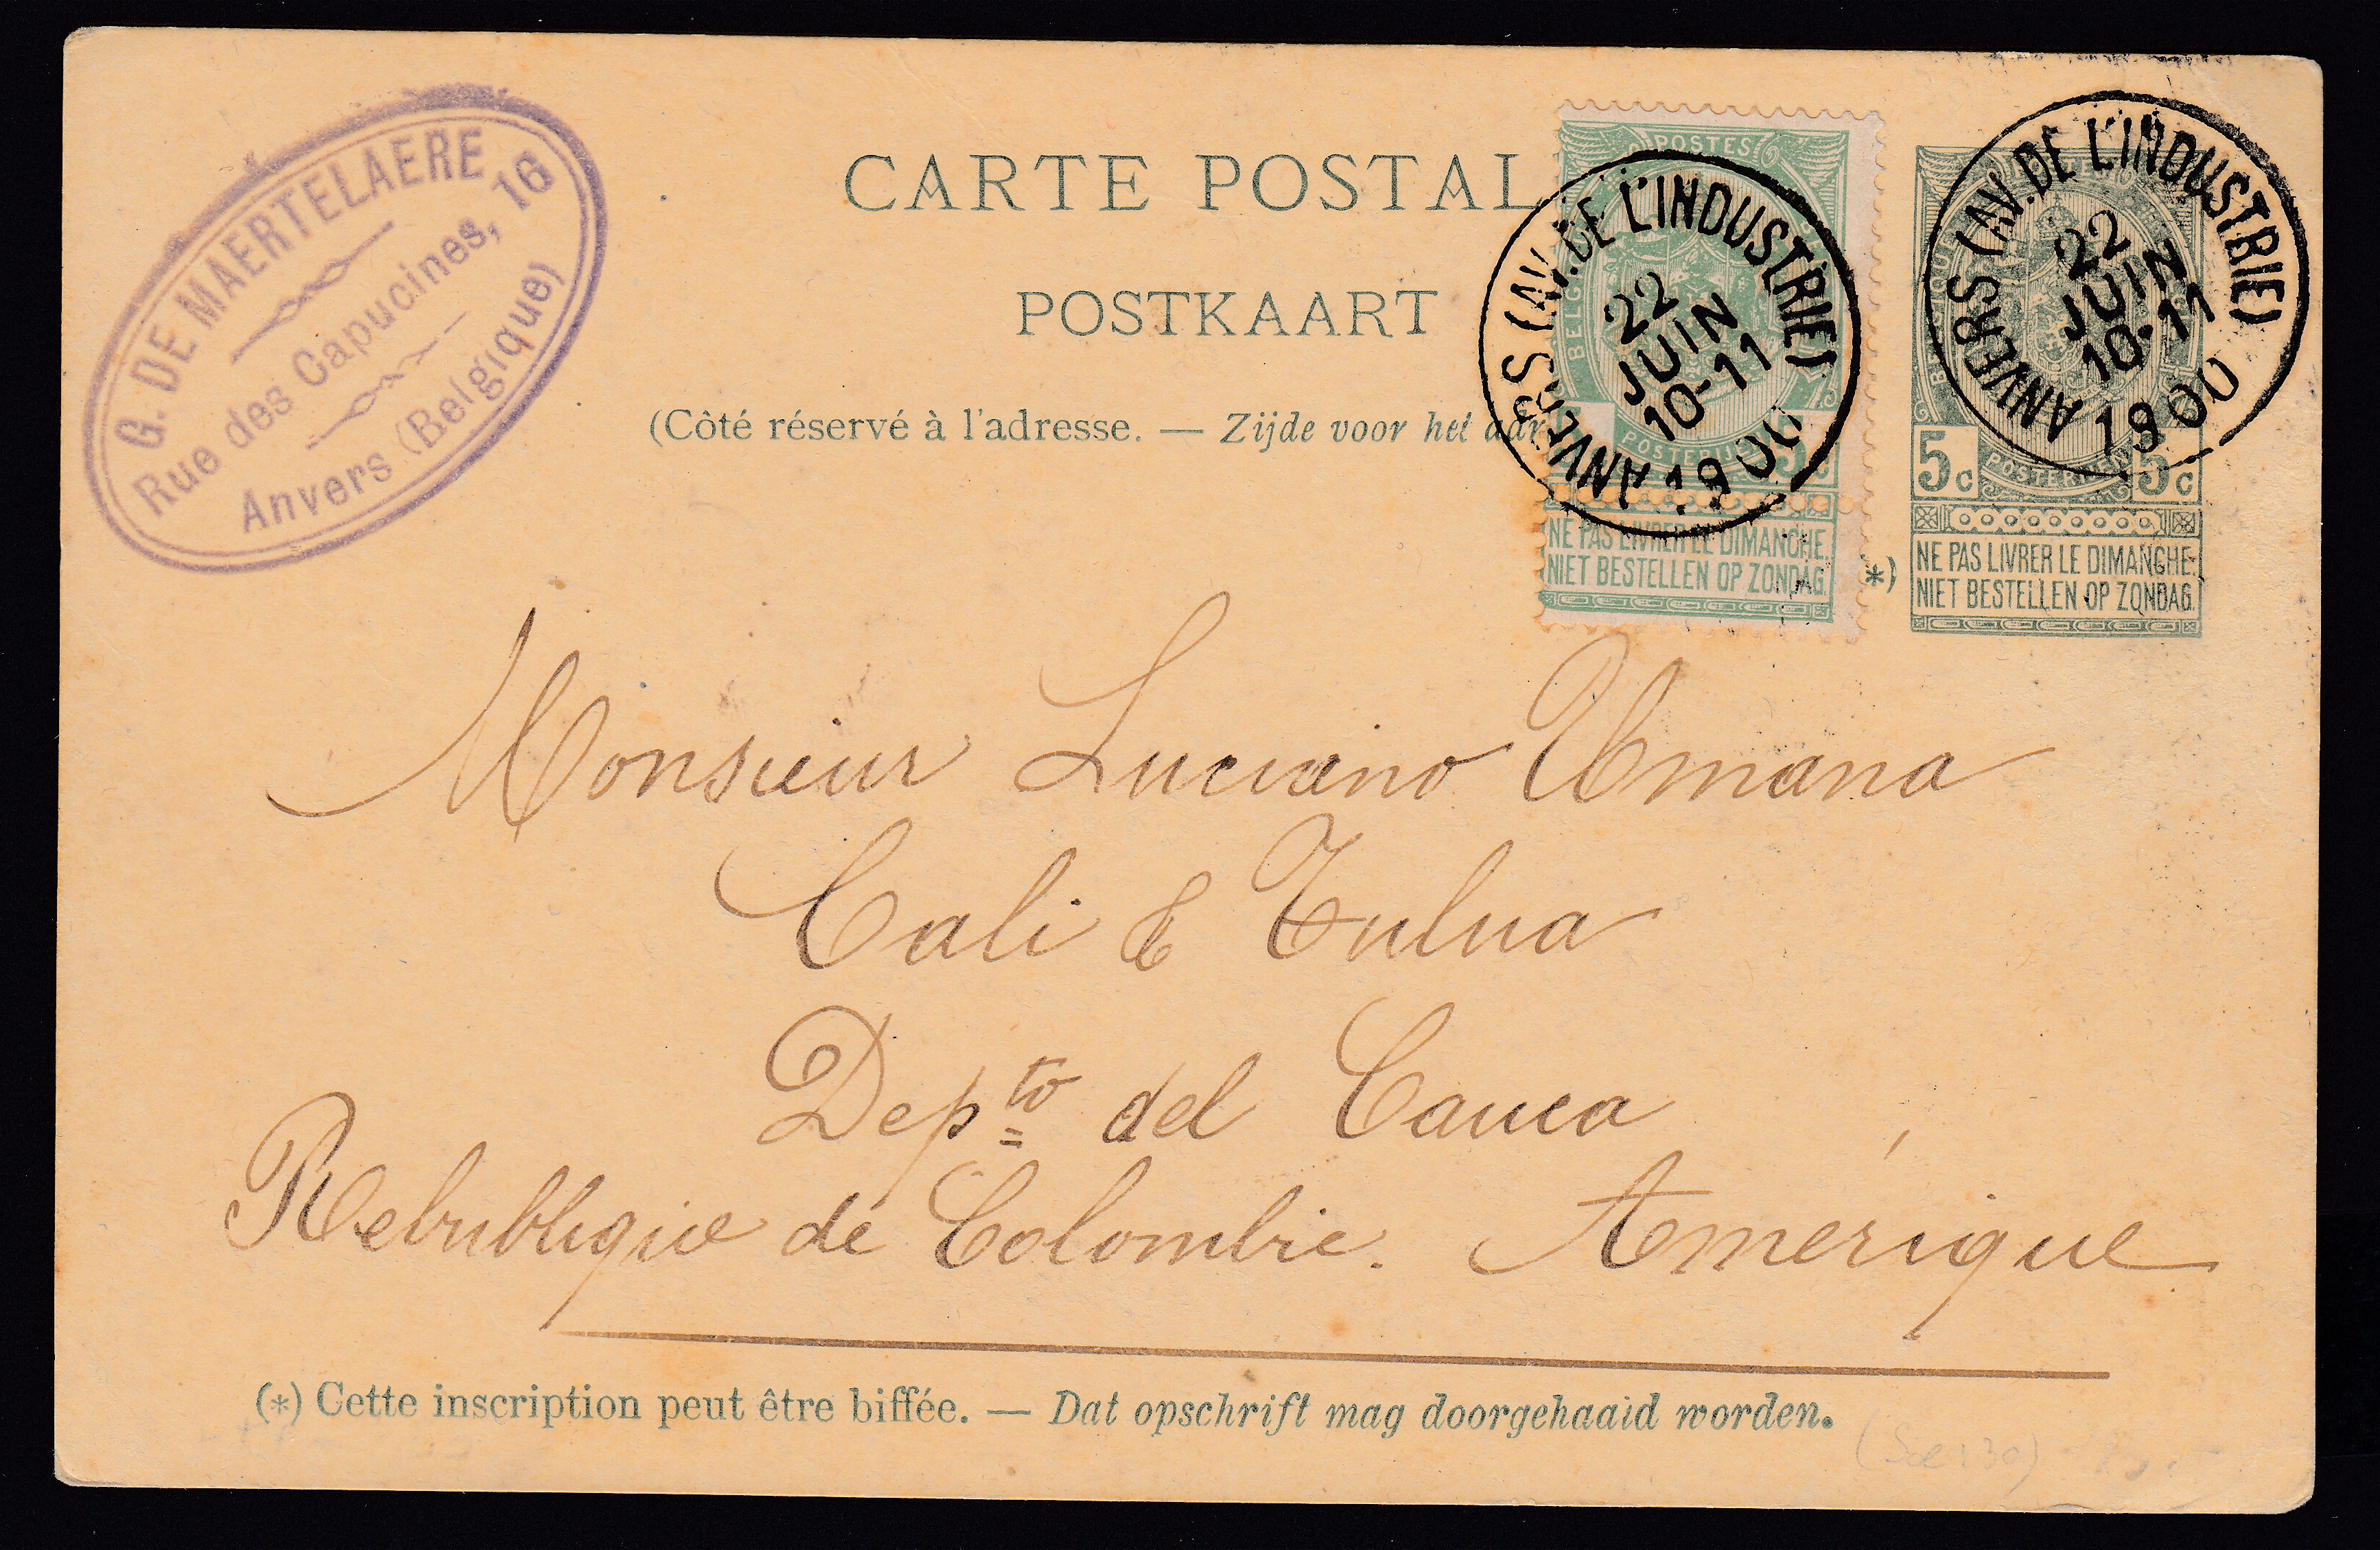 G. DE MAERTELAERE
Rue des Capucines, 16
Anvers (Belgique)
CARTE POSTAL
POSTKAART
(Côté réservé à l'adresse. — Zijde voor het
POSTES
ANVERS (AV. DE L'INDUSTRIE)
22
JUIN
10-11
1900
NE PAS LIVRER LE DIMANCHE.
NIET BESTELLEN OP ZONDAG.
*)
ANVERS (AV. DE L'INDUSTRIE)
22
JUIN
10-11
1900
5c 5c
NE PAS LIVRER LE DIMANCHE.
NIET BESTELLEN OP ZONDAG.
Monsieur Luciano Umana
Cali & Tulua
Depto del Cauca
Republique de Colombie. Amerique
(*) Cette inscription peut être biffée. — Dat opschrift mag doorgehaald worden.